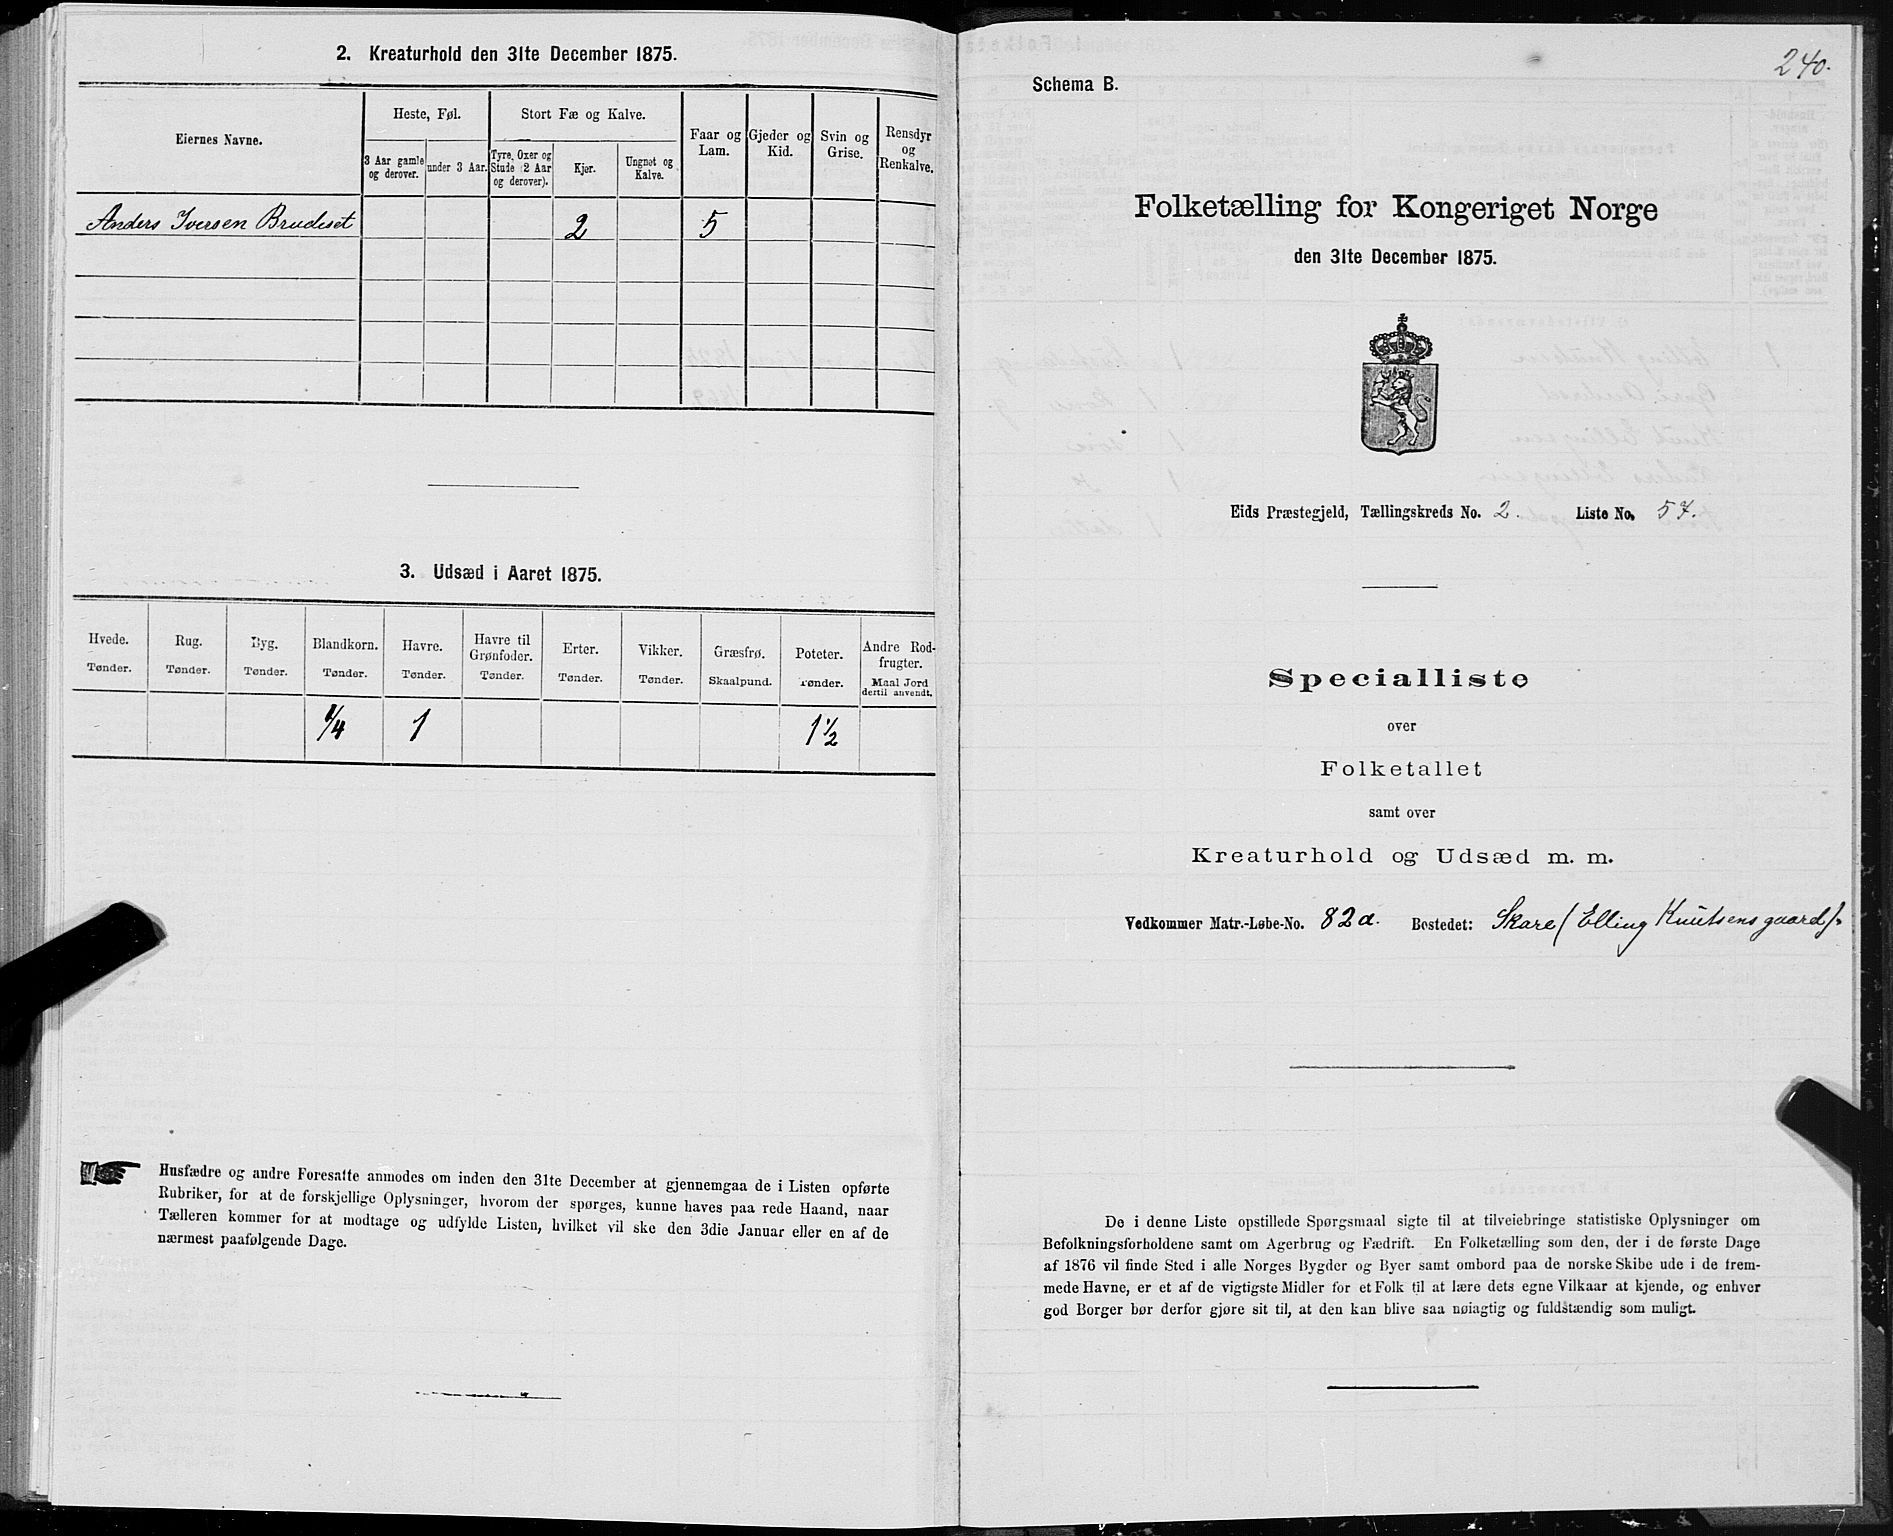 2. Kreaturhold den 31te December 1875.
Eiernes Navne.
Heste, Føl.
Stort Fæ og Kalve.
Faar og Lam.
Gjeder og Kid.
Svin og Grise.
Rensdyr og Renkalve.
3 Aar gamle og derover.
under 3 Aar.
Tyre, Oxer og Stude (2 Aar og derover).
Kjør.
Ungnøt og Kalve.
Anders Iversen Brudeset 2 5
3. Udsæd i Aaret 1875.
Hvede. Rug. Byg. Blandkorn. Havre. Havre til Grønfoder. Erter. Vikker. Græsfrø. Poteter. Andre Rodfrugter.
Tønder. Tønder. Tønder. Tønder. Tønder. Tønder. Tønder. Tønder. Skaalpund. Tønder. Maal Jord dertil anvendt.
1/4 1 1 1/2
Husfædre og andre Foresatte anmodes om inden den 31te December at gjennemgaa de i Listen opførte
Rubriker, for at de forskjellige Oplysninger, hvorom der spørges, kunne haves paa rede Haand, naar
Tælleren kommer for at modtage og udfylde Listen, hvilket vil ske den 3die Januar eller en af de
nærmest paafølgende Dage.
240.
Schema B.
Folketælling for Kongeriget Norge
den 31te December 1875.
Eids Præstegjeld, Tællingskreds No. 2. Liste No. 57.
Specialliste
over
Folketallet
samt over
Kreaturhold og Udsæd m. m.
Vedkommer Matr.-Løbe-No. 82a. Bostedet: Skare (Elling Knutsensgaard).
De i denne Liste opstillede Spørgsmaal sigte til at tilveiebringe statistiske Oplysninger om
Befolkningsforholdene samt om Agerbrug og Fædrift. En Folketælling som den, der i de første Dage
af 1876 vil finde Sted i alle Norges Bygder og Byer samt ombord paa de norske Skibe ude i de frem-
mede Havne, er et af de vigtigste Midler for et Folk til at lære dets egne Vilkaar at kjende, og enhver
god Borger bør derfor gjøre sit til, at den kan blive saa nøiagtig og fuldstændig som muligt.